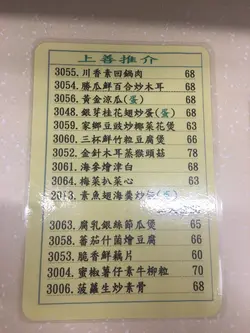 上善推介
3055. 川香素回鍋肉 68
3054. 勝瓜鮮百合炒木耳 68
3056. 黃金涼瓜(蛋) 68
3048. 銀芽桂花翅炒蛋(蛋) 68
3059. 家鄉豆豉炒椰菜花煲 63
3060. 三杯鮮竹粒豆腐煲 66
3052. 金針木耳蒸猴頭菇 78
3061. 海參燴津白 68
3064. 梅菜扒菜心 63
2013. 素魚翅海
3063. 腐乳銀絲節瓜煲 65
3058. 蕃茄什菌燴豆腐 68
3053. 脆香鮮藕片 60
3004. 蜜椒薯仔素牛柳粒 70
3006. 菠蘿生炒素骨 68